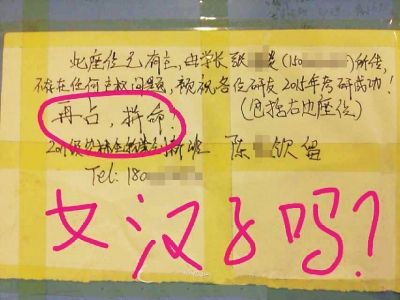 此座位已有主，由学长张 炎(150 )所传，
不存在任何产权问题，预祝各位研友2015年考研成功！
再占，拼命！(包括右边座位)
陈 钦留
Tel: 180
女汉子吗？